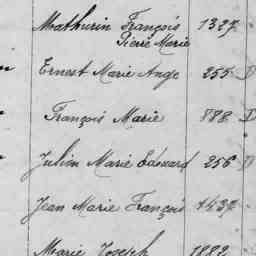 Mathurin François 1327
Pierre Marie
Ernest Marie Ange 255 D
François Marie 888 D
Julien Marie Edouard 256 D
Jean Marie François 1437
Marie Joseph 1882